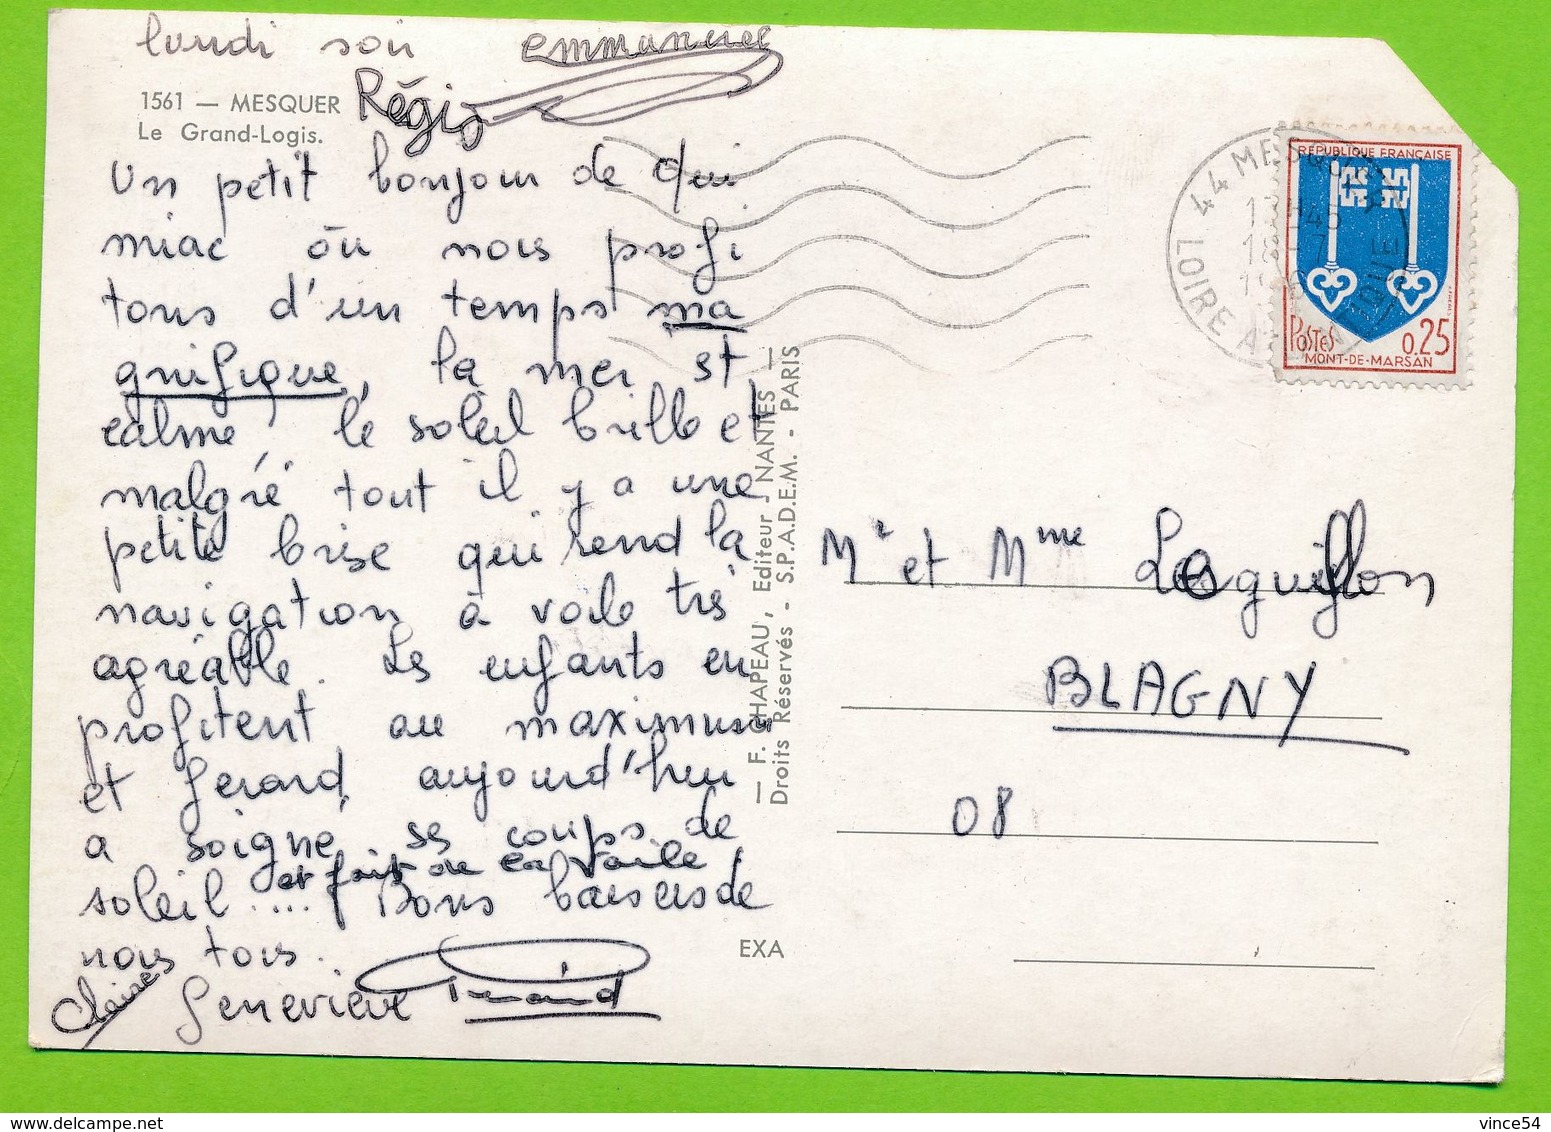 lundi soir emmanuel
Régis
1561 — MESQUER
Le Grand-Logis.
Un petit bonjour de Qui
miac où nous profi
tons d'un temps ma
gnifique, la mer est
calme, le soleil brille et
malgré tout il y a une
petite brise qui rend la
navigation à voile très
agréable. Les enfants en
profitent au maximum
et Gérard aujourd'hui
a soigné ses coups de
et fait de la voile !
soleil .... Bons baisers de
nous tous.
Claire Geneviève Gérard
— F. CHAPEAU, Editeur - NANTES —
Droits Réservés - S.P.A.D.E.M. - PARIS
EXA
44 MESQUER
18-7
LOIRE ATLANTIQUE
RÉPUBLIQUE FRANÇAISE
POSTES 0,25
MONT-DE-MARSAN
Mr et Mme Laguillon
BLAGNY
08
vince54